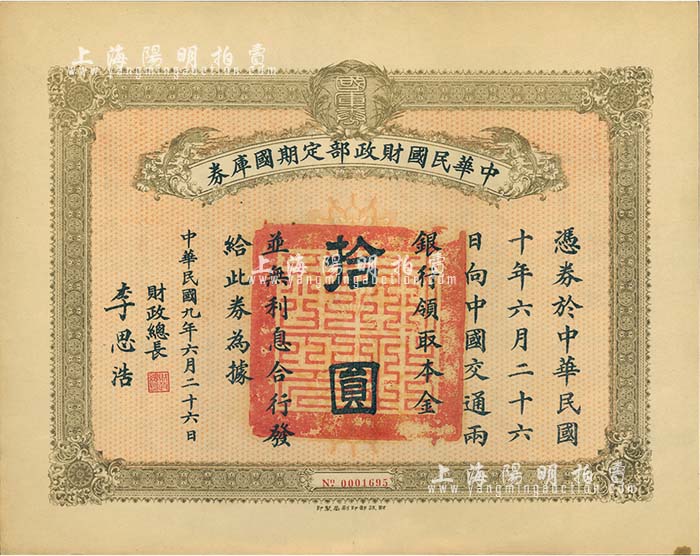 上海陽明拍賣
www.yangmingauction.com
國庫券
中華民國財政部定期國庫券
憑券於中華民國
十年六月二十六
日向中國交通兩
銀行領取本金
拾圓
並無利息合行發
給此券為據
中華民國九年六月二十六日
財政總長
李思浩
上海陽明拍賣
www.yangmingauction.com
No 0001695
上海陽明拍賣
www.yangmingauction.com
財政部印刷局製印